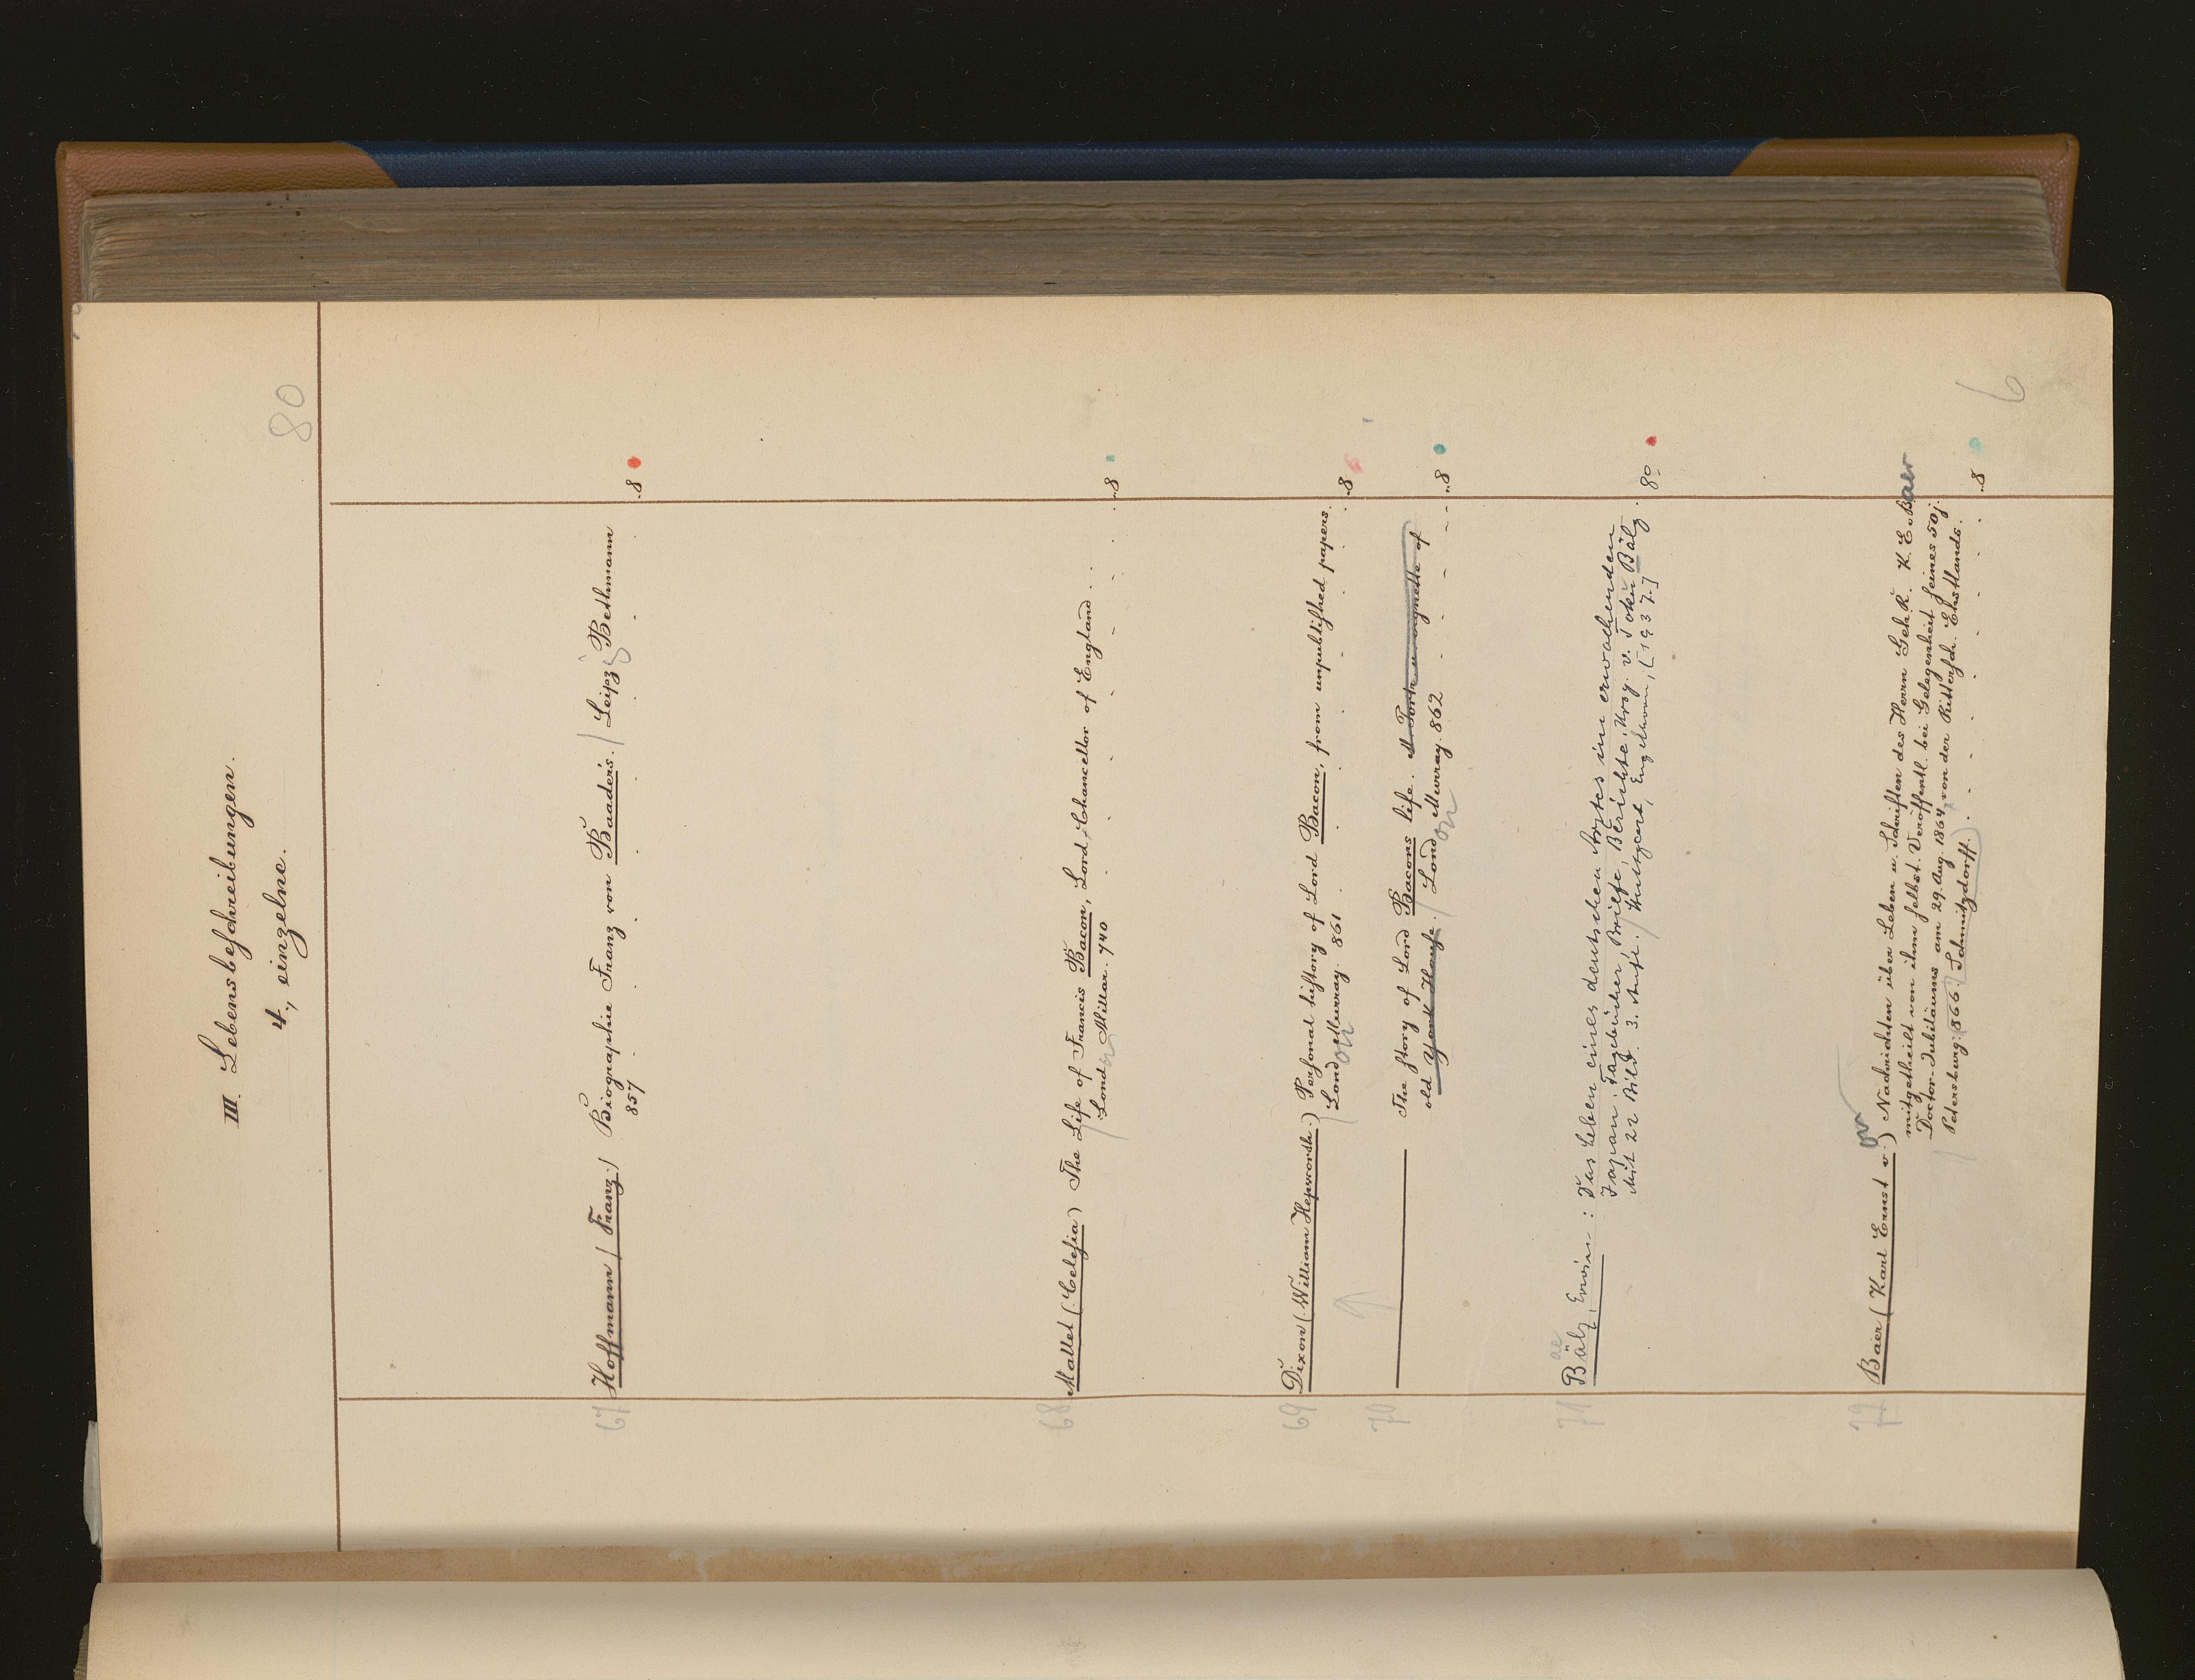 80
III. Lebensbeschreibungen.
4., einzelne.
67 Hoffmann (Franz.) Biographie Franz von Baader's. / Leipz. Bethmann
857 . . . . . . . . 8
68 Mallet (Celesia) The Life of Francis Bacon, Lord Chancellor of England . . .
Lond on Millar. 740 . . . . . . . . 8
69 Dixon (William Hepworth.) Personal history of Lord Bacon, from unpublished papers.
Lond on Murray. 861 . . . . . . 8
70 ——— The story of Lord Bacons life. M. Portr. u. vignette of
old York House. / Lond on Murray. 862 . . . . . . 8
71 Bälz, Erwin: Das Leben eines deutschen Arztes im erwachenden
ae
Japan. Tagebücher, Briefe, Berichte. Hrsg. v. Toku Bälz.
Mit 22 Bild. 3. Aufl. / Stuttgart, Engelhorn, [1937.] 8º
72 Baer (Karl Ernst v.) on Nachrichten über Leben u. Schriften des Herrn Geh.R. K. E. v. Baer
mitgetheilt von ihm selbst. Veröffentl. bei Gelegenheit seines 50j.
Doctor-Jubiläums am 29. Aug. 1864, von der Rittersch. Ehstlands.
Petersburg: 866. Schmitzdorff. . . . . . . . 8
6